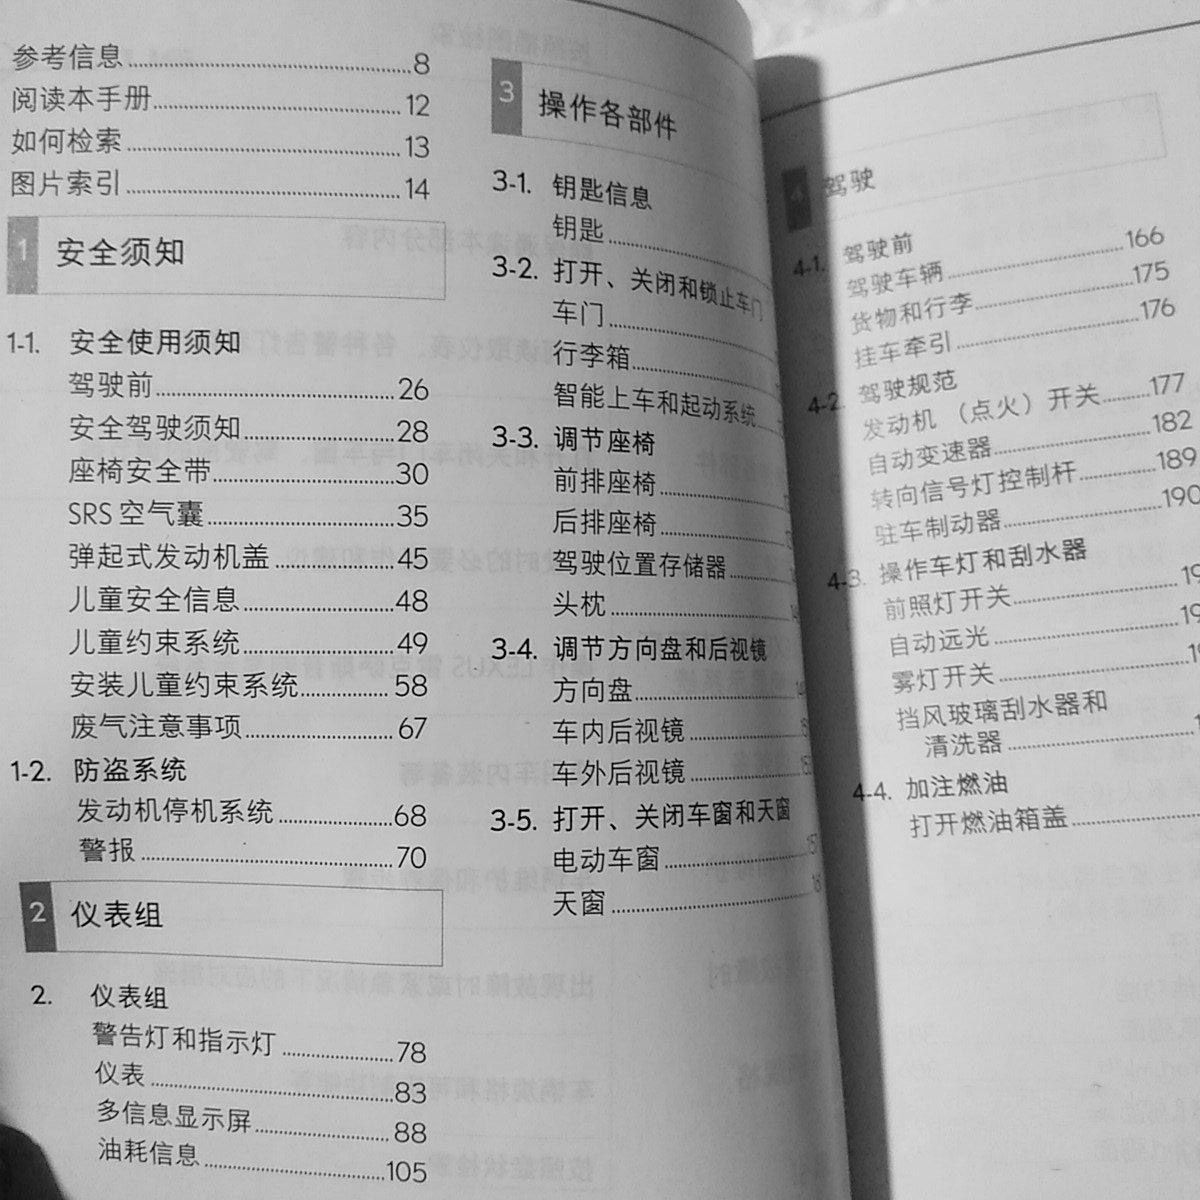 参考信息 8
阅读本手册 12
如何检索 13
图片索引 14
1 安全须知
1-1. 安全使用须知
驾驶前 26
安全驾驶须知 28
座椅安全带 30
SRS 空气囊 35
弹起式发动机盖 45
儿童安全信息 48
儿童约束系统 49
安装儿童约束系统 58
废气注意事项 67
1-2. 防盗系统
发动机停机系统 68
警报 70
2 仪表组
2. 仪表组
警告灯和指示灯 78
仪表 83
多信息显示屏 88
油耗信息 105
3 操作各部件
3-1. 钥匙信息
钥匙
3-2. 打开、关闭和锁止车门
车门
行李箱
智能上车和起动系统
3-3. 调节座椅
前排座椅
后排座椅
驾驶位置存储器
头枕
3-4. 调节方向盘和后视镜
方向盘
车内后视镜
车外后视镜
3-5. 打开、关闭车窗和天窗
电动车窗
天窗
4 驾驶
4-1. 驾驶前
驾驶车辆 166
货物和行李 175
挂车牵引 176
4-2. 驾驶规范
发动机（点火）开关 177
自动变速器 182
转向信号灯控制杆 189
驻车制动器 190
4-3. 操作车灯和刮水器
前照灯开关
自动远光
雾灯开关
挡风玻璃刮水器和
清洗器
4-4. 加注燃油
打开燃油箱盖